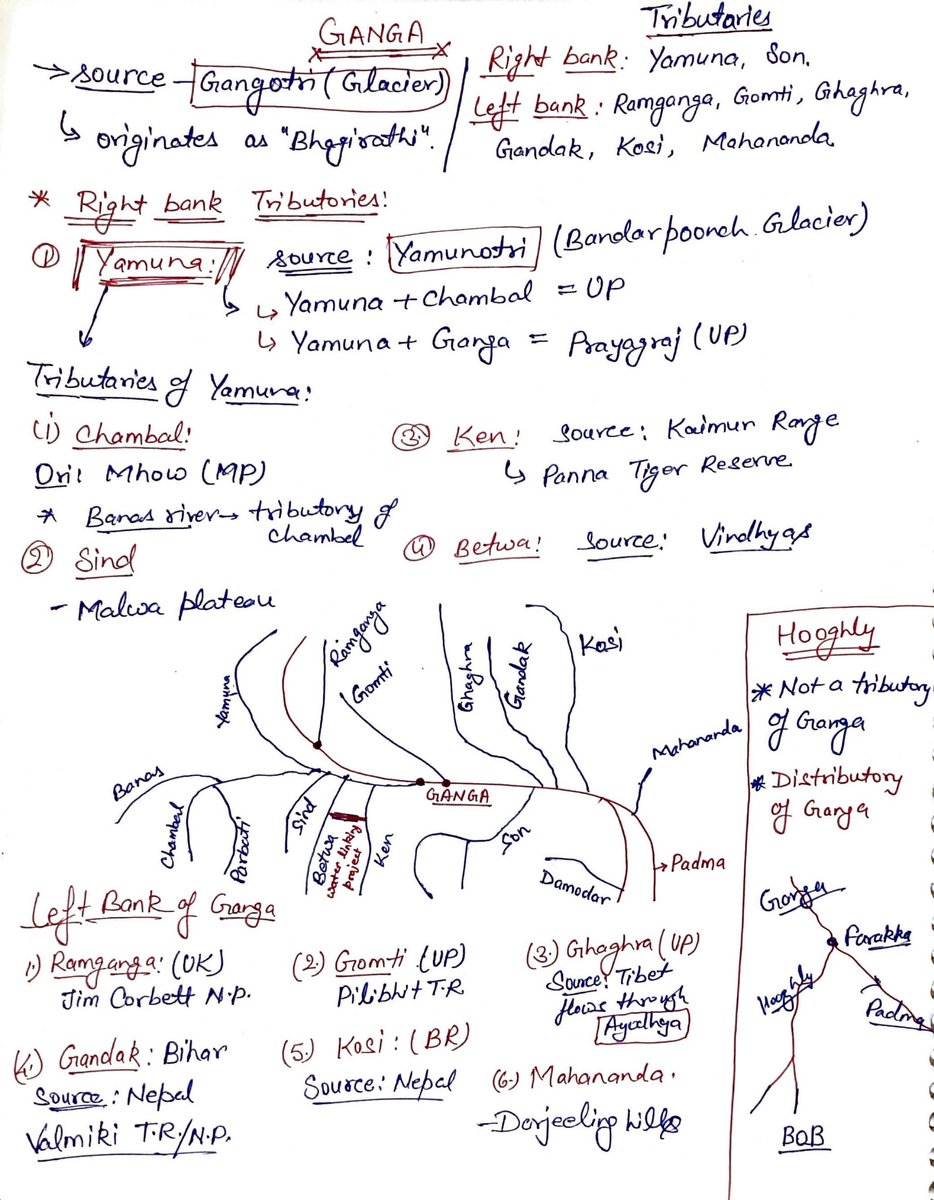 GANGA
→ source - Gangotri (Glacier)
↳ originates as "Bhagirathi".
Tributaries
Right bank: Yamuna, Son.
Left bank: Ramganga, Gomti, Ghaghra,
Gandak, Kosi, Mahananda
* Right bank Tributories:
① Yamuna: source: Yamunotri (Bandarpoonch Glacier)
↳ Yamuna + Chambal = UP
↳ Yamuna + Ganga = Prayagraj (UP)
Tributaries of Yamuna:
(i) Chambal:
Ori: Mhow (MP)
* Banas river → tributory of
Chambel
② Sind
- Malwa plateau
③ Ken: Source: Kaimur Range
↳ Panna Tiger Reserve
④ Betwa: Source: Vindhyas
Yamuna
Ramganga
Gomti
Ghaghra
Gandak
Kosi
Mahananda
Banas
Chambal
Parbati
Sind
Betwa
water linking
project
Ken
GANGA
Son
Damodar
→ Padma
Hooghly
* Not a tributory
of Ganga
* Distributory
of Ganga
Ganga
Farakka
Hooghly
Padma
BOB
Left Bank of Ganga
1.) Ramganga: (UK)
Jim Corbett N.P.
(2.) Gomti (UP)
Pilibhit T.R.
(3.) Ghaghra (UP)
Source: Tibet
flows through
Ayodhya
(4.) Gandak: Bihar
Source: Nepal
Valmiki T.R./N.P.
(5.) Kosi: (BR)
Source: Nepal
(6.) Mahananda.
- Darjeeling hills